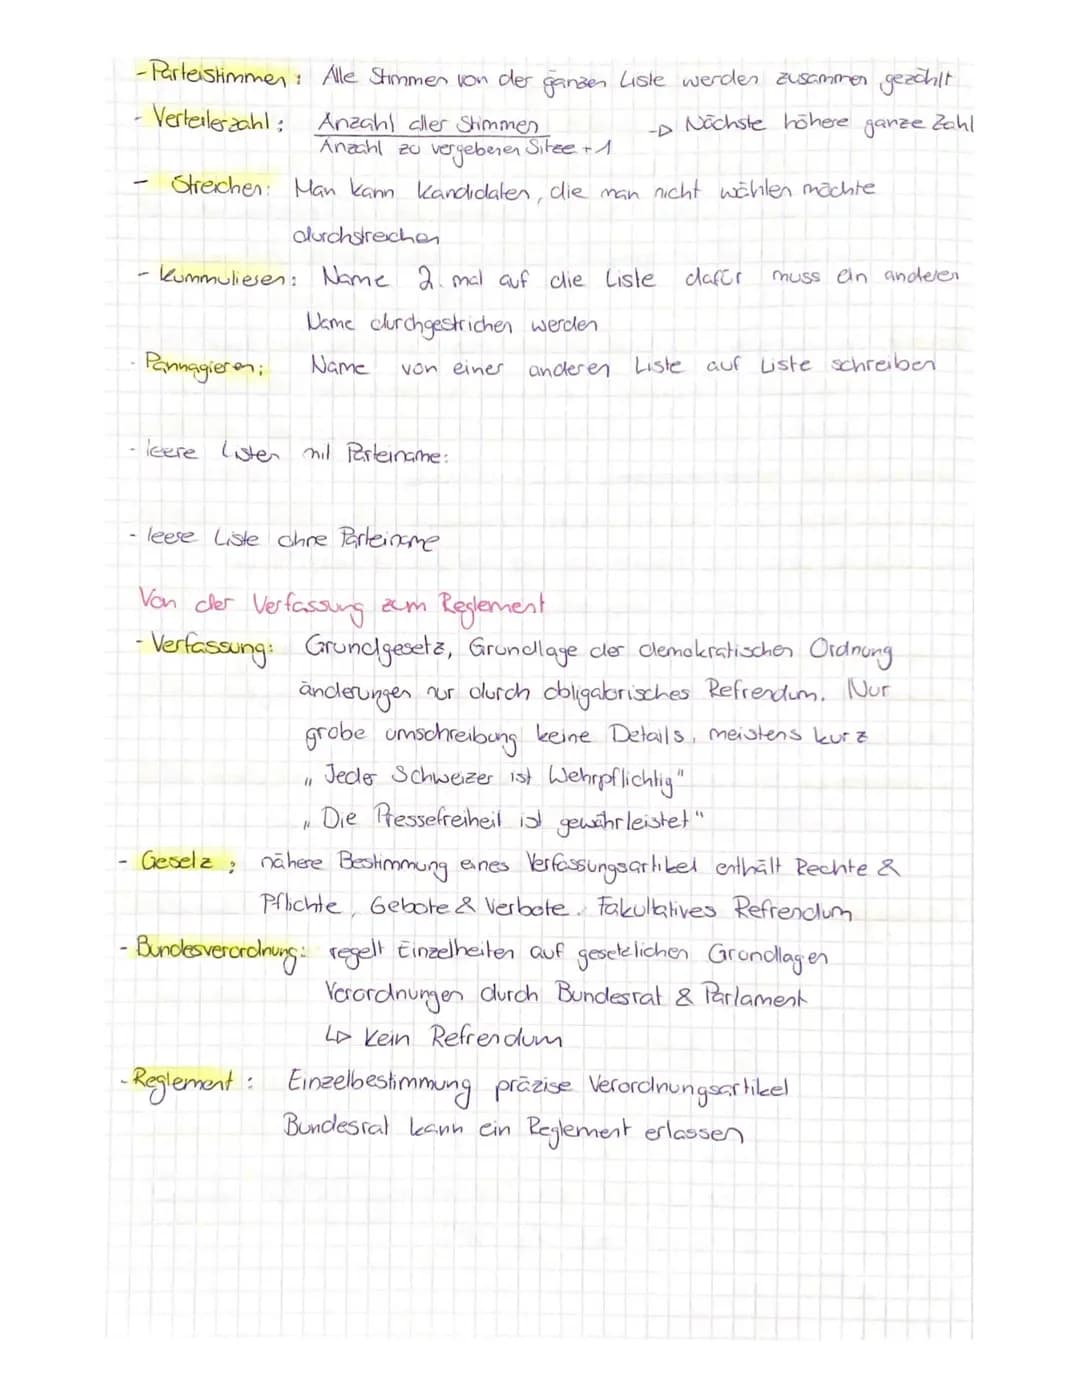 - Parteistimmen: Alle Stimmen von der ganzen Liste werden zusammen gezählt
- Verteilerzahl: Anzahl aller Stimmen -> Nächste höhere ganze Zahl
Anzahl zu vergebener Sitze + 1
- Streichen: Man kann Kandidaten, die man nicht wählen möchte
durchstreichen
- Kummuliesen: Name 2. mal auf die Liste dafür muss ein anderer
Name durchgestrichen werden
- Pannagieren: Name von einer anderen Liste auf Liste schreiben
- leere Listen mit Parteiname:
- leere Liste ohne Parteiname
Von der Verfassung zum Reglement
- Verfassung: Grundgesetz, Grundlage der demokratischen Ordnung
änderungen nur durch obligatorisches Refrendum. Nur
grobe umschreibung keine Details, meistens kurz
„Jeder Schweizer ist Wehrpflichtig"
„Die Pressefreiheit ist gewährleistet"
- Gesetz: nähere Bestimmung eines Verfassungsartikel enthält Rechte &
Pflichte, Gebote & Verbote. Fakultatives Refrendum
- Bundesverordnung: regelt Einzelheiten auf gesetzlichen Grundlagen
Verordnungen durch Bundesrat & Parlament
↳ Kein Refrendum
- Reglement: Einzelbestimmung präzise Verordnungsartikel
Bundesrat kann ein Reglement erlassen